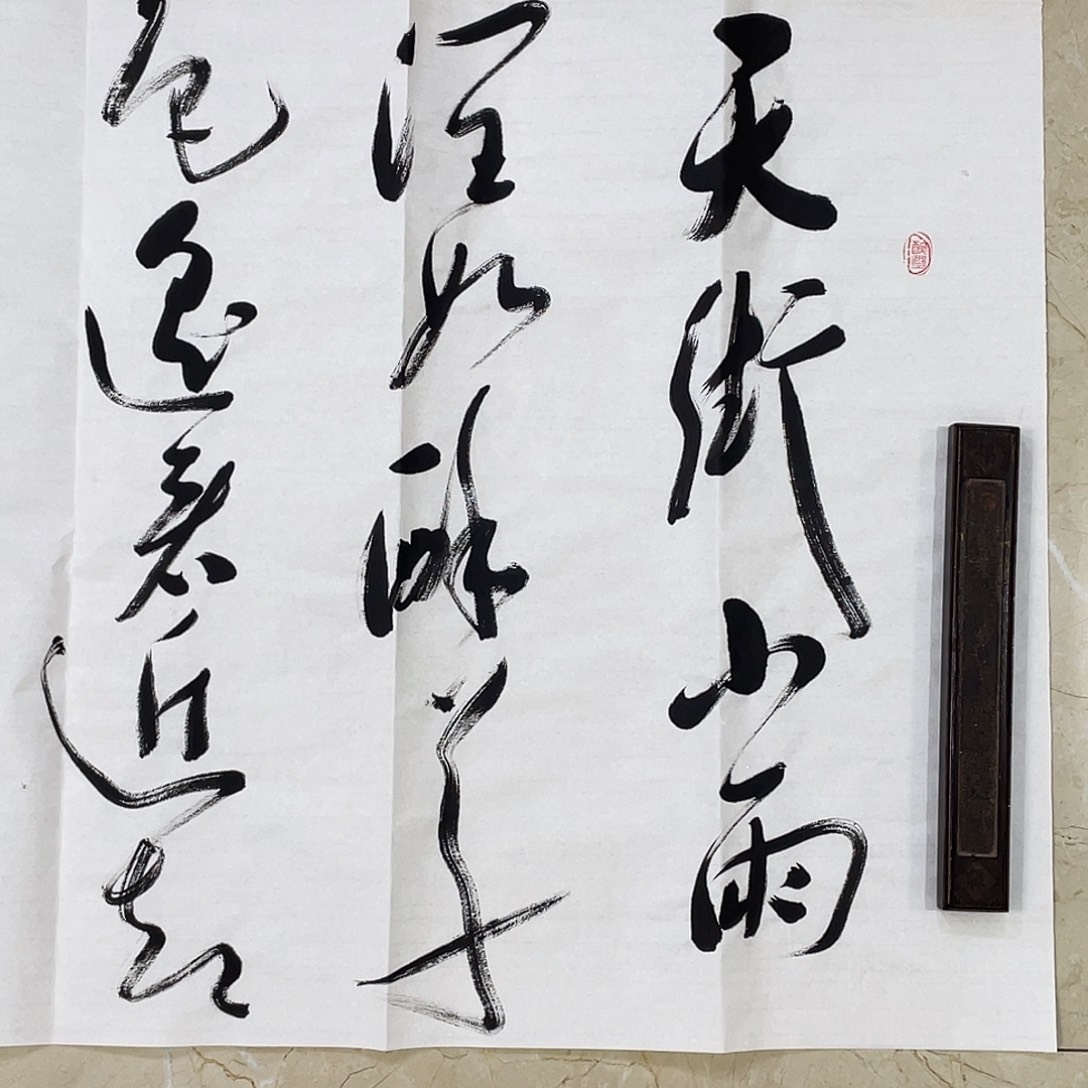 天街小雨
潤如酥草
色遥看近却